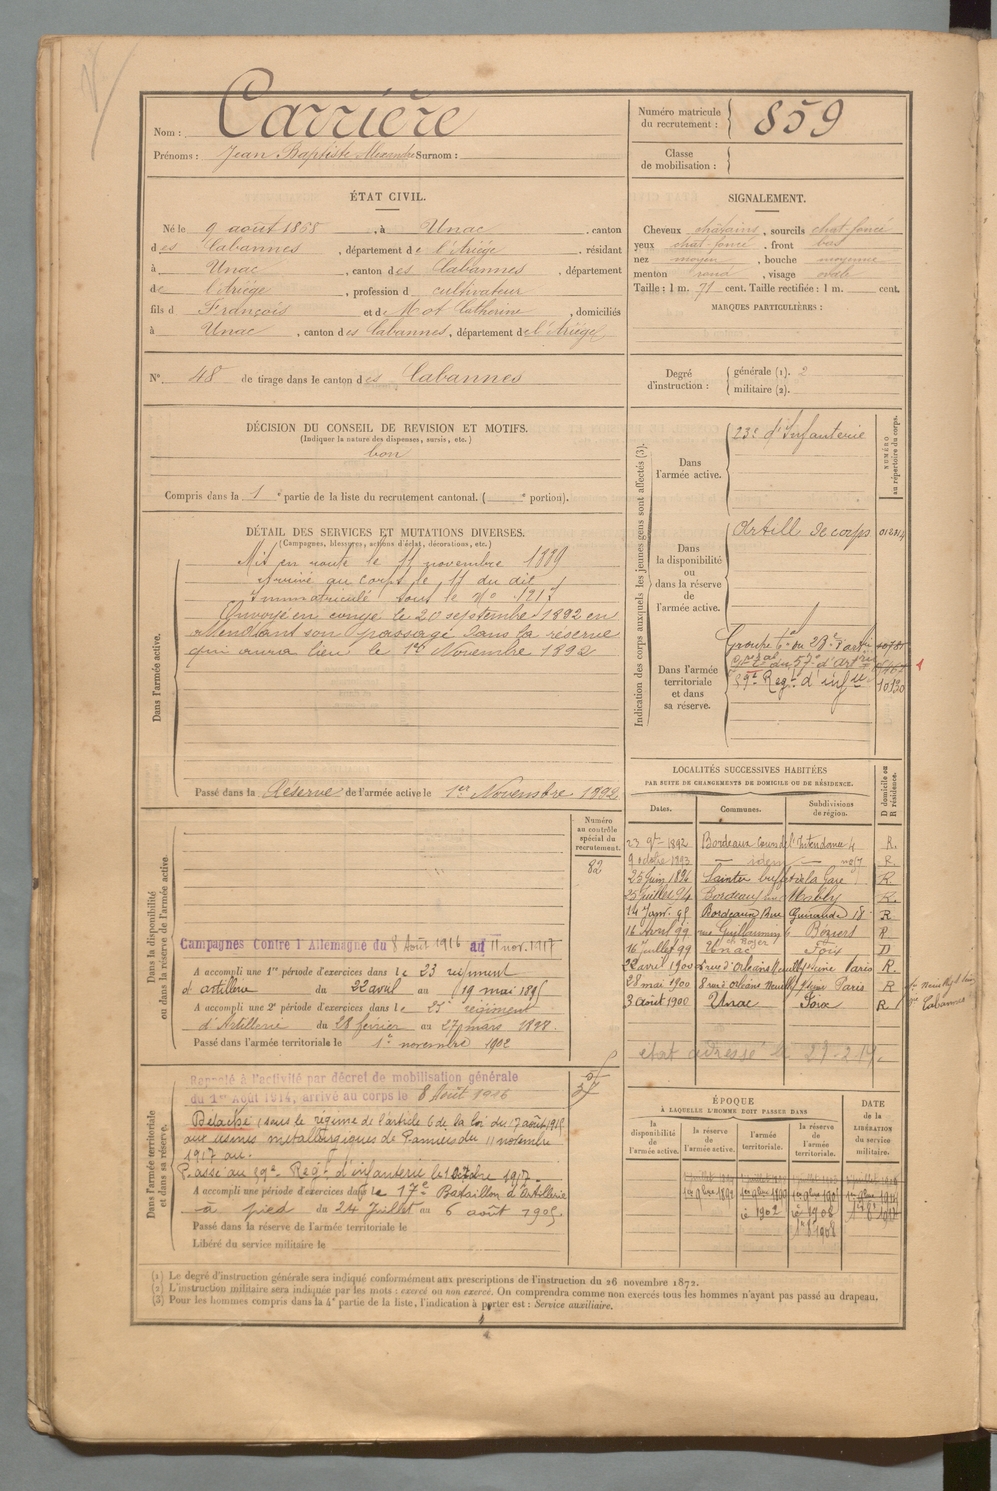 Nom : Carrière
Prénoms : Jean Baptiste Alexandre Surnom :
Numéro matricule du recrutement : 859
Classe de mobilisation :
ÉTAT CIVIL.
Né le 9 août 1868, à Unac, canton
des Cabannes, département de l'Ariège, résidant
à Unac, canton des Cabannes, département
de l'Ariège, profession d cultivateur
fils d François et de Mot Catherine, domiciliés
à Unac, canton des Cabannes, département de l'Ariège
N° 48 de tirage dans le canton des Cabannes
SIGNALEMENT.
Cheveux châtains, sourcils chat-foncé
yeux chat-foncé, front bas
nez moyen, bouche moyenne
menton rond, visage ovale
Taille : 1 m. 71 cent. Taille rectifiée : 1 m. cent.
MARQUES PARTICULIÈRES :
Degré d'instruction : générale (1). 2
militaire (2).
DÉCISION DU CONSEIL DE REVISION ET MOTIFS.
(Indiquer la nature des dispenses, sursis, etc.)
bon
Compris dans la 1e partie de la liste du recrutement cantonal. ( e portion).
DÉTAIL DES SERVICES ET MUTATIONS DIVERSES.
(Campagnes, blessures, actions d'éclat, décorations, etc.)
Dans l'armée active.
Mis en route le 11 novembre 1889
Arrivé au corps le 11 du dit
Immatriculé sous le N°
Envoyé en congé le 20 septembre 1892 en
attendant son passage dans la réserve
qui aura lieu le 1er Novembre 1892
Passé dans la Réserve de l'armée active le 1er Novembre 1892
Indication des corps auxquels les jeunes gens sont affectés (3).
NUMÉRO au répertoire du corps.
Dans l'armée active.
23e d'Infanterie
Dans la disponibilité ou dans la réserve de l'armée active.
Artill de corps
Dans l'armée territoriale et dans sa réserve.
Groupe
du 57e d'Artrie
59e Regt d'infrie
10130
LOCALITÉS SUCCESSIVES HABITÉES
PAR SUITE DE CHANGEMENTS DE DOMICILE OU DE RÉSIDENCE.
D domicile ou R résidence.
Dates. Communes. Subdivisions de région.
23 9bre 1892 Bordeaux Cours de l'Intendance 4 R.
9 octobre 1893 — idem — R.
25 juin 1894 Saintes buffet de la Gare R.
25 juillet 94 Bordeaux R.
14 Janv. 95 Bordeaux Rue 18 R
16 avril 99 rue 6 Beziers R
16 juillet 99 Unac Foix D
22 avril 1900 8 rue d'Orléans Neuilly s/ Seine Paris R.
28 mai 1900 8 rue d'Orléans Neuilly s/ Seine Paris R.
3 août 1900 Unac Foix R.
état adressé le 27-2-17.
Dans la disponibilité ou dans la réserve de l'armée active.
Numéro au contrôle spécial du recrutement.
82
Campagnes Contre l'Allemagne du 8 Août 1916 au 11 nov. 1917
A accompli une 1re période d'exercices dans le 23 régiment
d'artillerie du 22 avril au 19 mai 1895
A accompli une 2e période d'exercices dans le 23 régiment
d'Artillerie du 28 février au 27 mars 1898
Passé dans l'armée territoriale le 1er novembre 1902
Dans l'armée territoriale et dans sa réserve.
Rappelé à l'activité par décret de mobilisation générale
du 1er Août 1914, arrivé au corps le 8 Août 1916
Détaché (sous le régime de l'article 6 de la loi du 17 août 1915
aux usines métallurgiques de Pamiers du 11 novembre
1917 au.
Passé au 59e Regt d'infanterie le 1917
A accompli une période d'exercices dans le 17e Bataillon d'Artillerie
à pied du 24 Juillet au 6 août 1905
Passé dans la réserve de l'armée territoriale le
Libéré du service militaire le
ÉPOQUE
À LAQUELLE L'HOMME DOIT PASSER DANS
la disponibilité de l'armée active. la réserve de l'armée active. l'armée territoriale. la réserve de l'armée territoriale.
DATE de la LIBÉRATION du service militaire.
1er 9bre 1892
1902
1908
1er 8bre 1908
(1) Le degré d'instruction générale sera indiqué conformément aux prescriptions de l'instruction du 26 novembre 1872.
(2) L'instruction militaire sera indiquée par les mots : exercé ou non exercé. On comprendra comme non exercés tous les hommes n'ayant pas passé au drapeau.
(3) Pour les hommes compris dans la 4e partie de la liste, l'indication à porter est : Service auxiliaire.